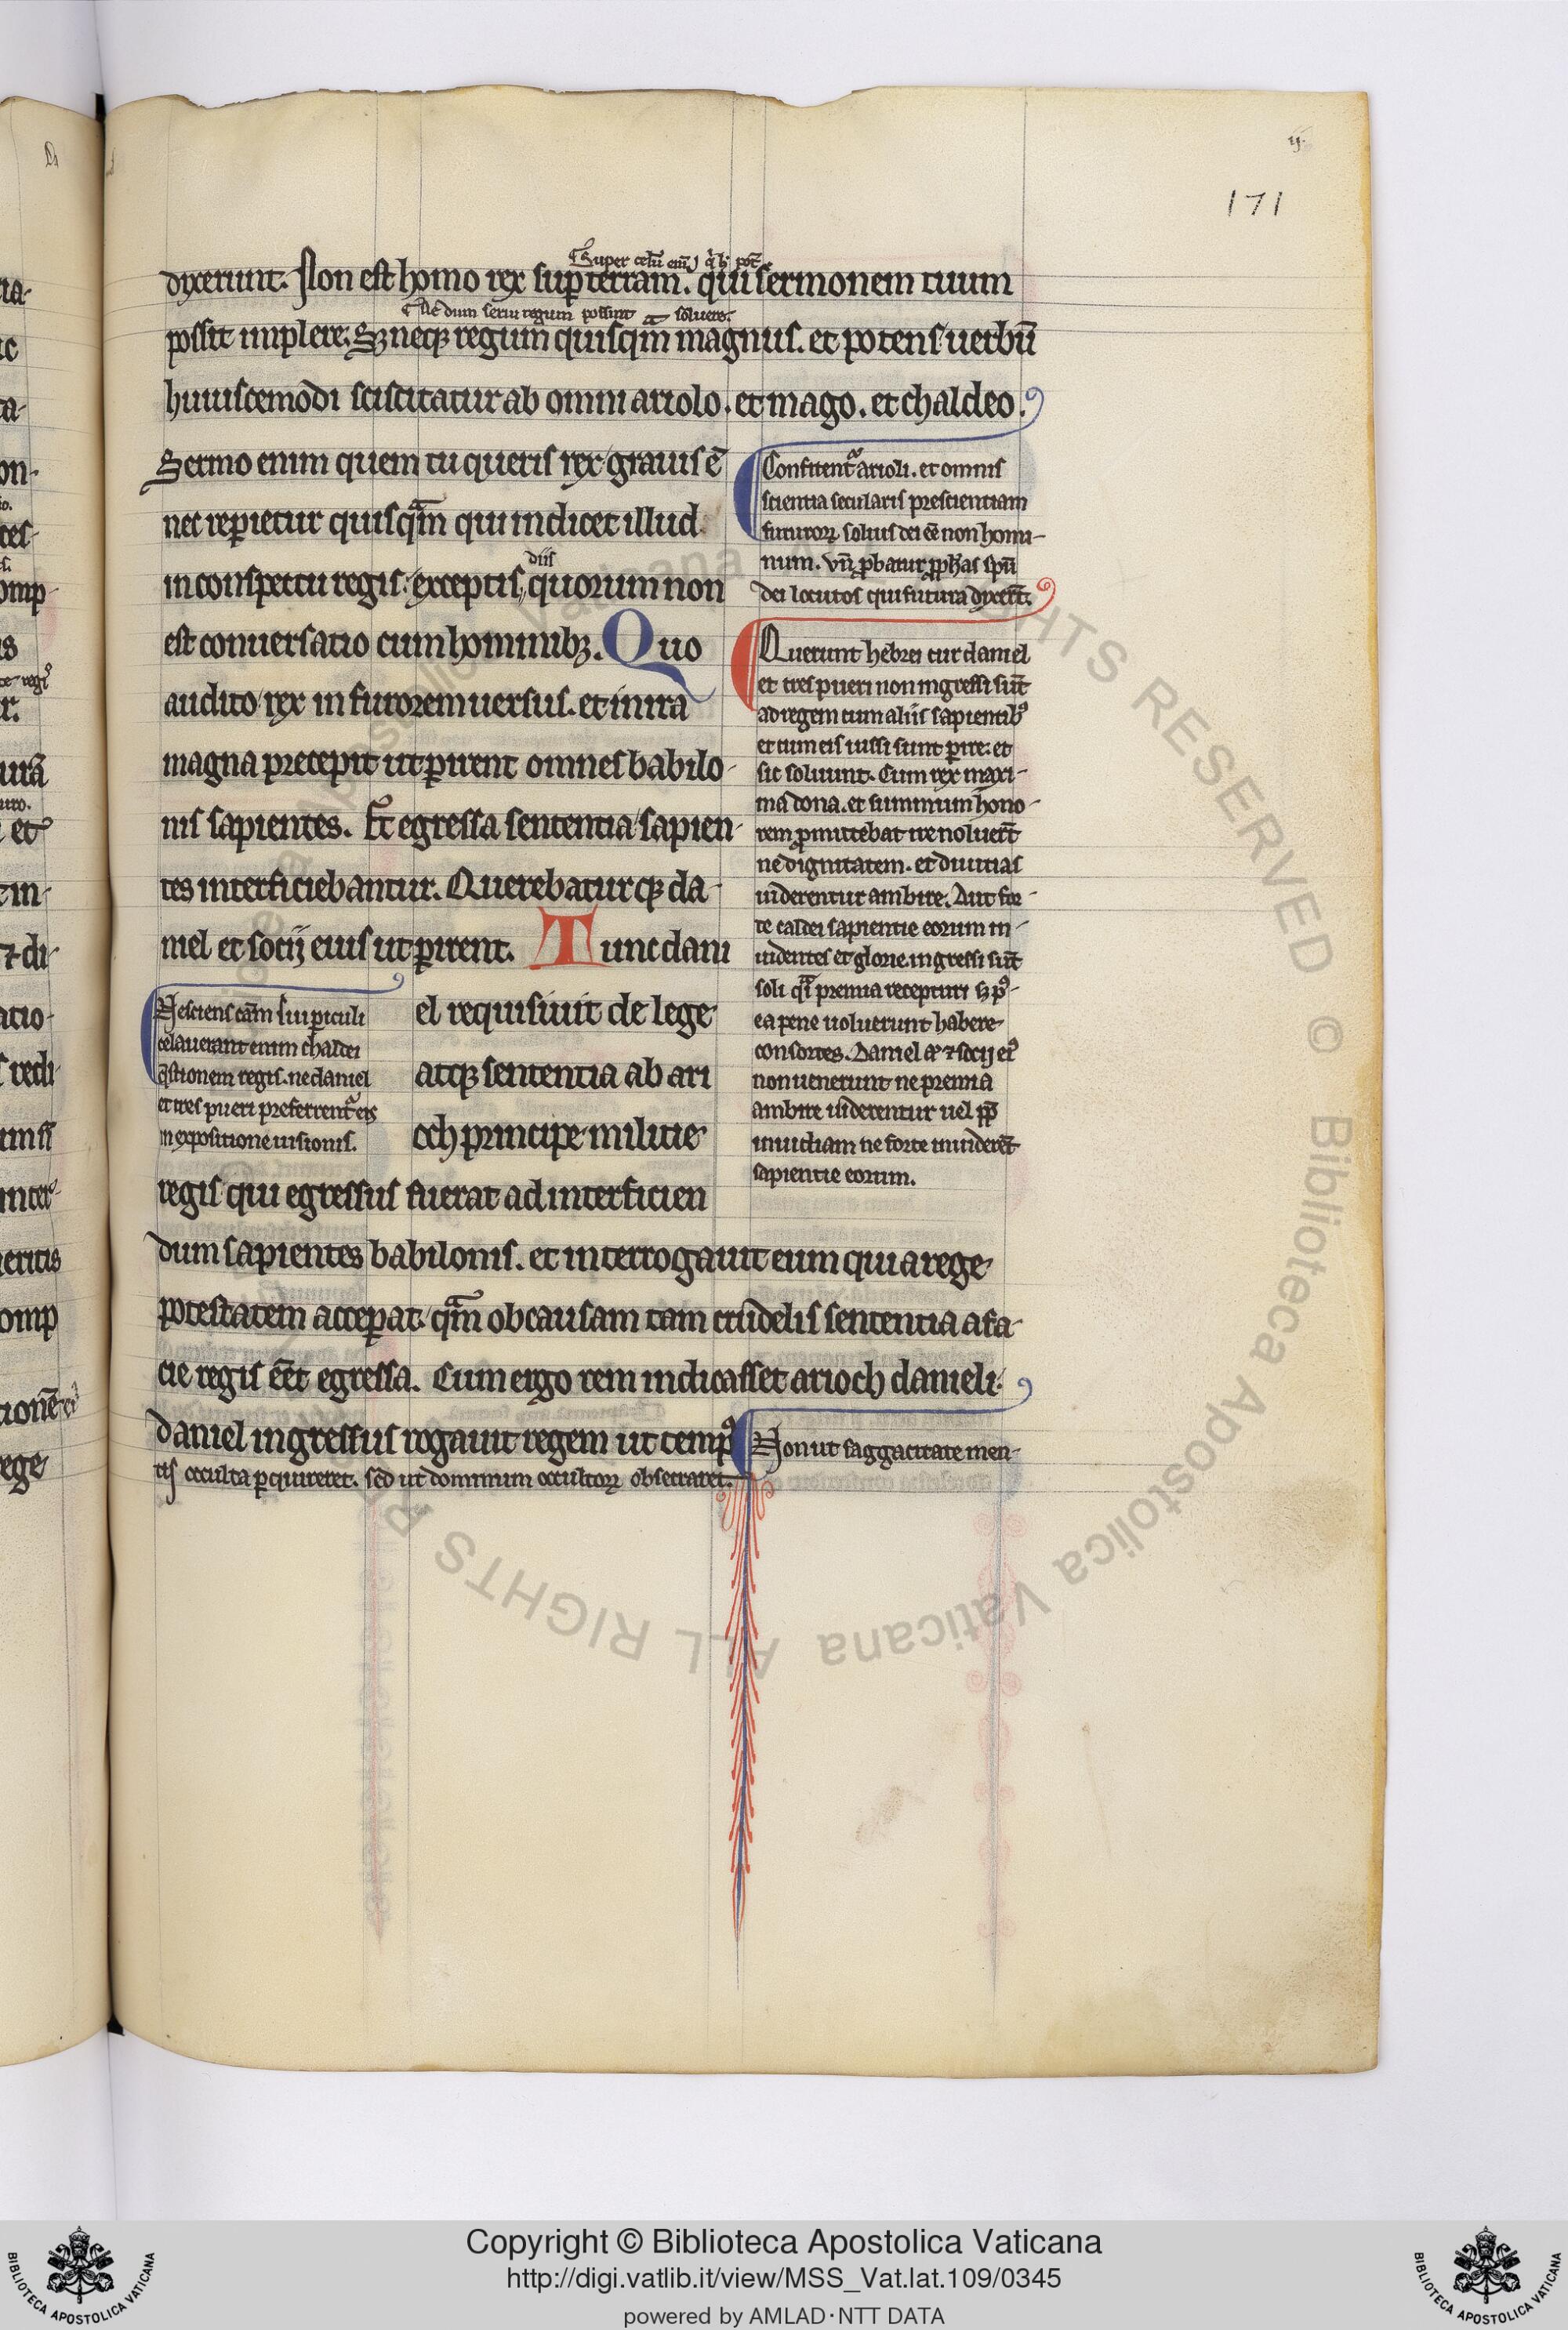 ij.
171
Super celũ eni͂
dixerunt. Non est homo rex sup terram. qui sermonem tuum
Ac dum serui regum possint soluere.
possit implere. Sꝫ neqꝫ regum quisqᷓm magnus. et potens uerbũ
huiuscemodi sciscitatur ab omni ariolo. et mago. et chaldeo.
Sermo enim quem tu queris rex grauis ẽ
nec reꝑietur quisqᷓm qui indicet illud
diis
in conspectu regis. exceptis quorum non
est conuersatio cum hominibꝫ. Quo
audito rex in furorem uersus. et in ira
magna precepit ut ꝑirent omnes babilo-
nis sapientes. Et egressa sententia sapien-
tes interficiebantur. Querebatur qꝫ da-
niel et socij eius ut ꝑirent. Tunc dani
el requisiuit de lege
atqꝫ sententia ab ari
och principe militie
regis qui egressus fuerat ad interficien
dum sapientes babilonis. et interrogauit eum qui a rege
potestatem acceꝑat. qᷓm ob causam tam crudelis sententia a fa-
cie regis eẽt egressa. Cum ergo rem indicasset arioch danieli.
daniel ingressus rogauit regem ut tempꝰ
Confitentᷣ arioli. et omnis
scientia secularis prescientiam
futuroꝝ solius dei eẽ non homi-
num. vñ ꝓbatur ꝓph̃as spũ
dei locutos qui futura dixerũt.
Querunt hebrei cur daniel
et tres pueri non ingressi sũt
ad regem cum aliis sapientibꝰ
et cum eis iussi sunt ꝑire. et
sic soluunt. Cum rex maxi-
ma dona. et summum hono-
rem ꝓmittebat ire noluerũt
ne dignitatem. et diuitias
uiderentur ambire. Aut for-
te caldei sapientie eorum in-
uidentes et glorie. ingressi sũt
soli qᷓsi premia recepturi sꝫ pꝰ-
ea pene uoluerunt habere
consortes. Daniel ⁊ socij eiꝰ
non uenerunt ne premia
ambire uiderentur uel ꝓp̃
inuidiam ne forte inuiderẽt
sapientie eorum.
Nesciens cãm sui ꝑiculi
celauerant enim chaldei
q̃stionem regis. ne daniel
et tres pueri preferrentᷣ eis
in expositione uisionis.
Non ut saggacitate men-
tis occulta ꝑquireret. sed ut dominum occultoꝝ obsecraret.
ALL RIGHTS RESERVED © Biblioteca Apostolica Vaticana
Copyright © Biblioteca Apostolica Vaticana
http://digi.vatlib.it/view/MSS_Vat.lat.109/0345
powered by AMLAD·NTT DATA
BIBLIOTECA APOSTOLICA VATICANA
BIBLIOTECA APOSTOLICA VATICANA